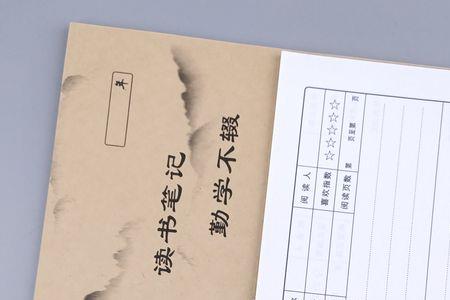 年
读书笔记
勤学不辍
阅读人
喜欢指数 ☆☆☆☆☆
阅读页数 第 页至第 页